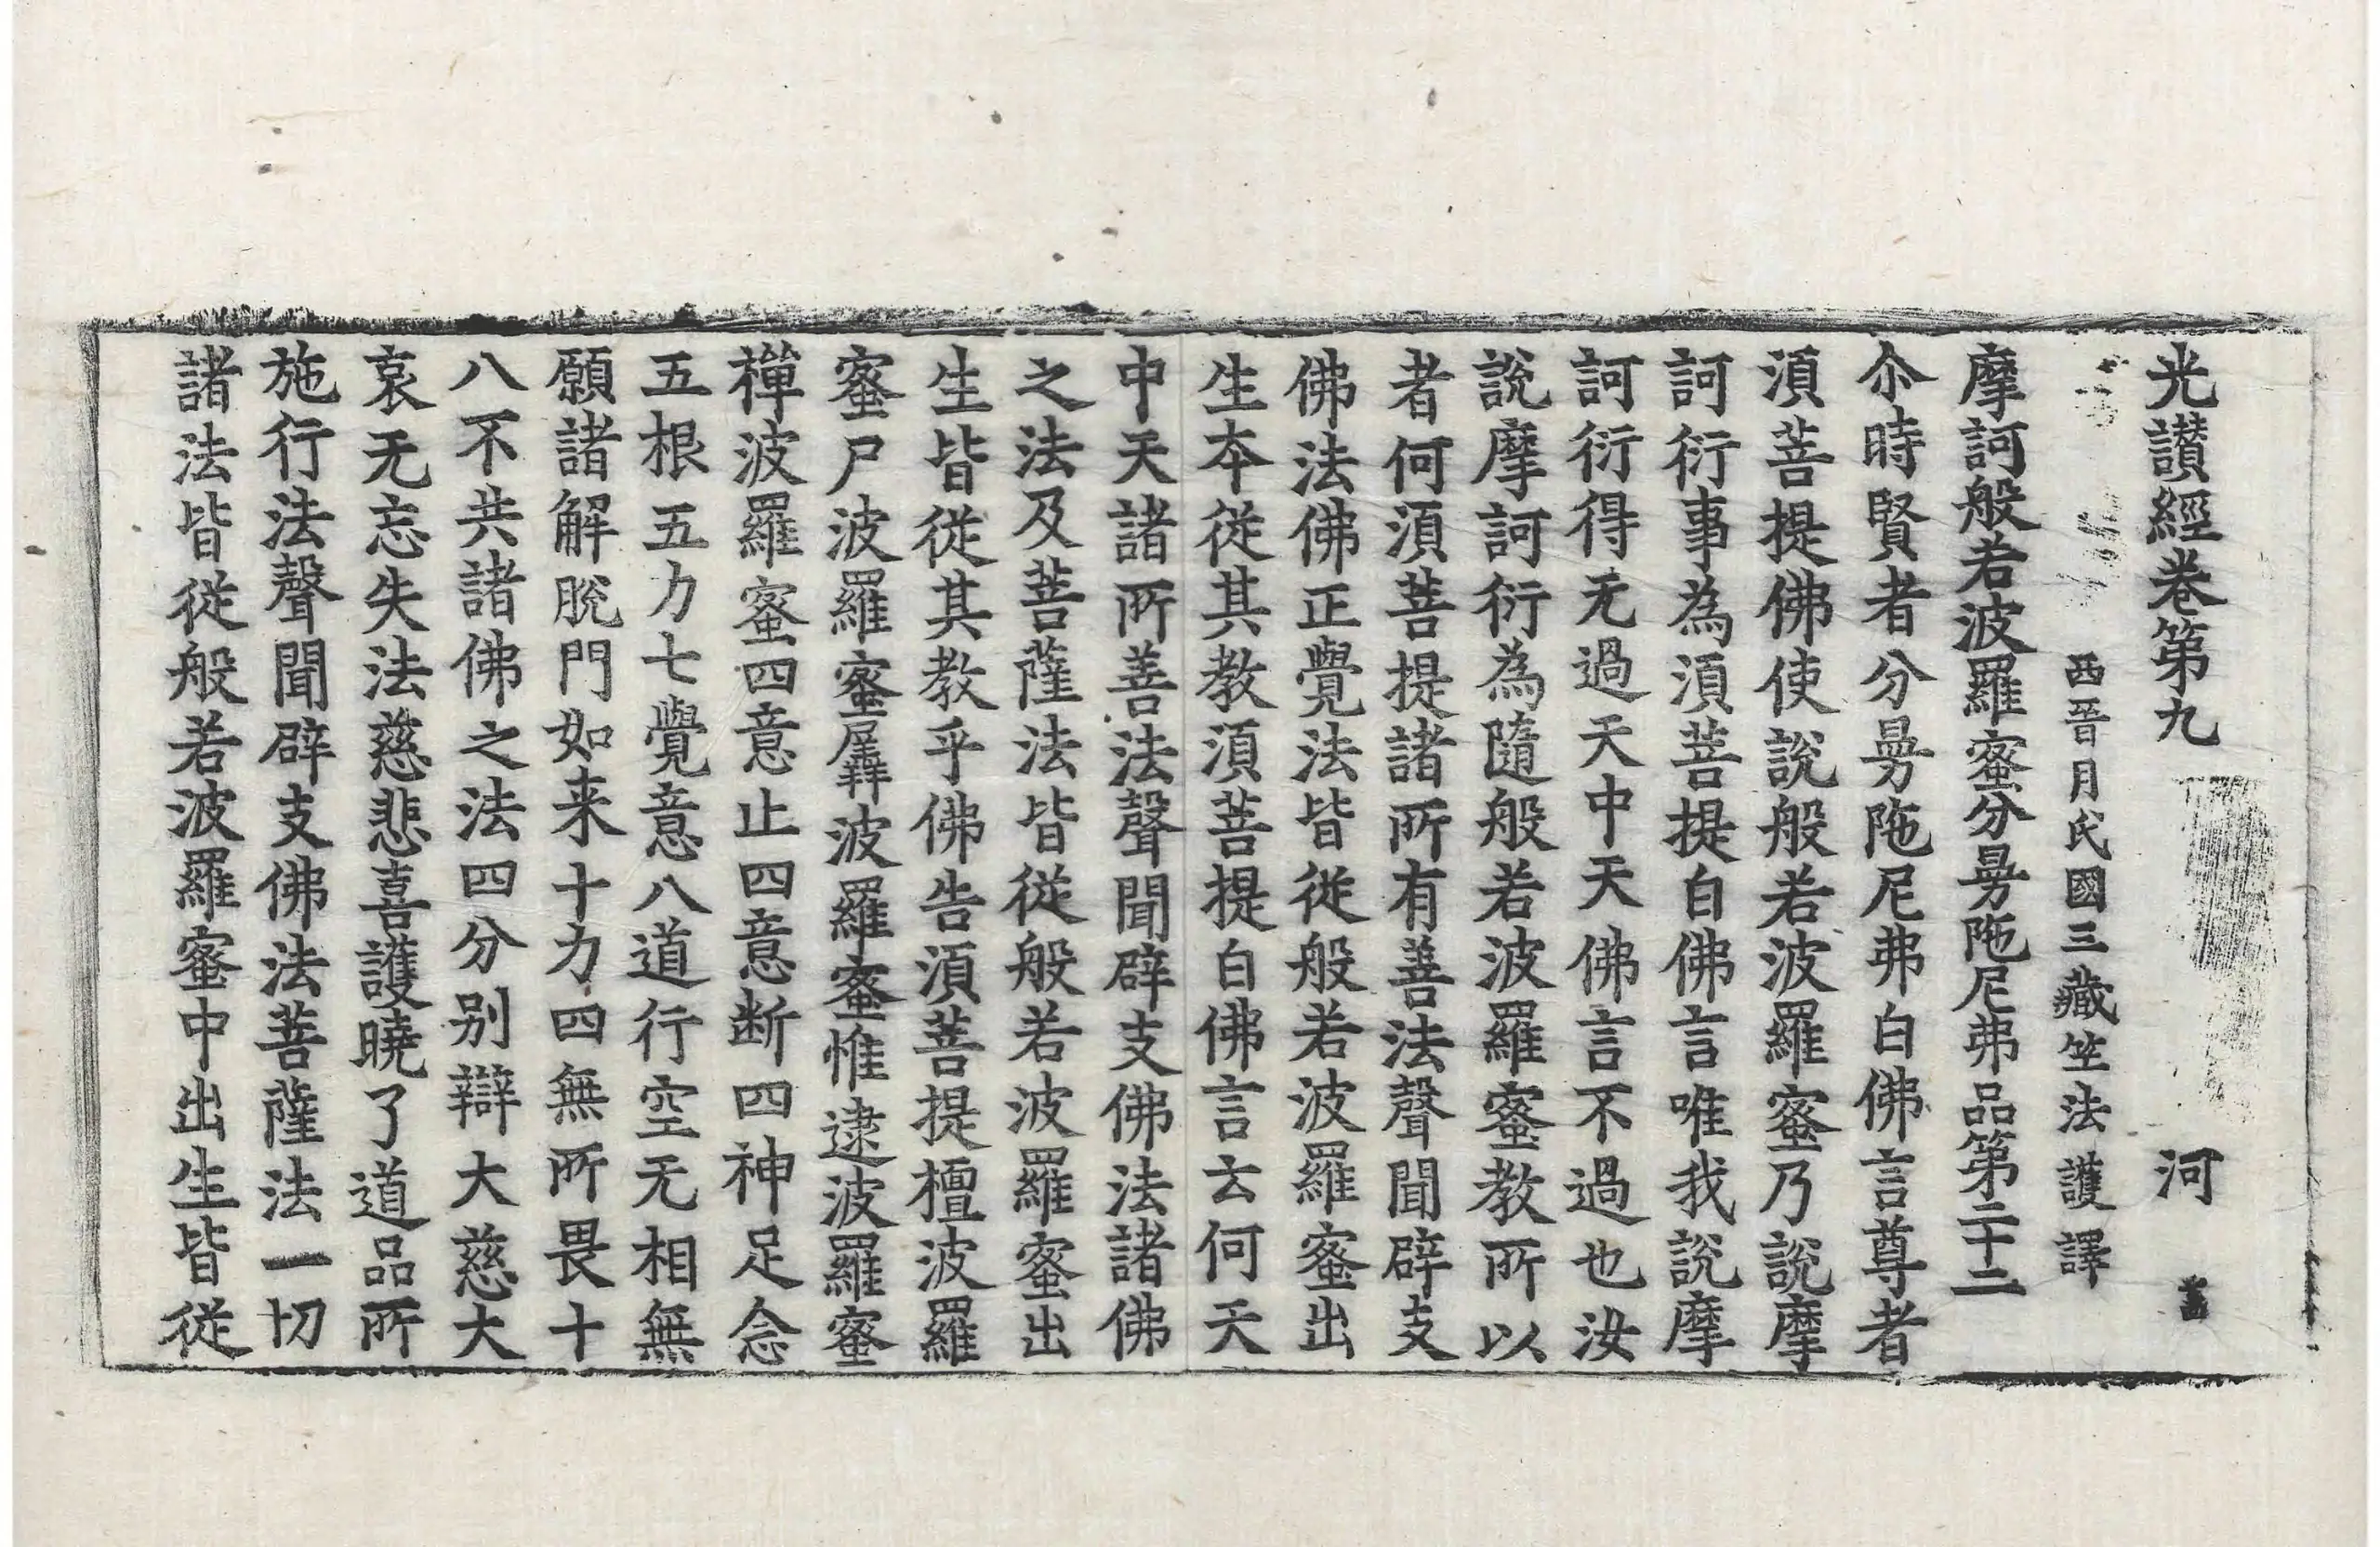 光讃經卷第九 河
西晉月氏國三藏竺法護譯
摩訶般若波羅蜜分曼陁尼弗品第二十二
尒時賢者分曼陁尼弗白佛言尊者
湏菩提佛使說般若波羅蜜乃說摩
訶衍事為湏菩提白佛言唯我說摩
訶衍得无過天中天佛言不過也汝
說摩訶衍為隨般若波羅蜜教所以
者何湏菩提諸所有善法聲聞辟支
佛法佛正覺法皆從般若波羅蜜出
生夲從其教湏菩提白佛言云何天
中天諸所善法聲聞辟支佛法諸佛
之法及菩薩法皆從般若波羅蜜出
生皆從其教乎佛告湏菩提檀波羅
蜜尸波羅蜜羼波羅蜜惟逮波羅蜜
禪波羅蜜四意止四意断四神足念
五根五力七覺意八道行空无相無
願諸解脫門如来十力四無所畏十
八不共諸佛之法四分別辯大慈大
哀无忘失法慈悲喜護曉了道品所
施行法聲聞辟支佛法菩薩法一切
諸法皆從般若波羅蜜中出生皆從